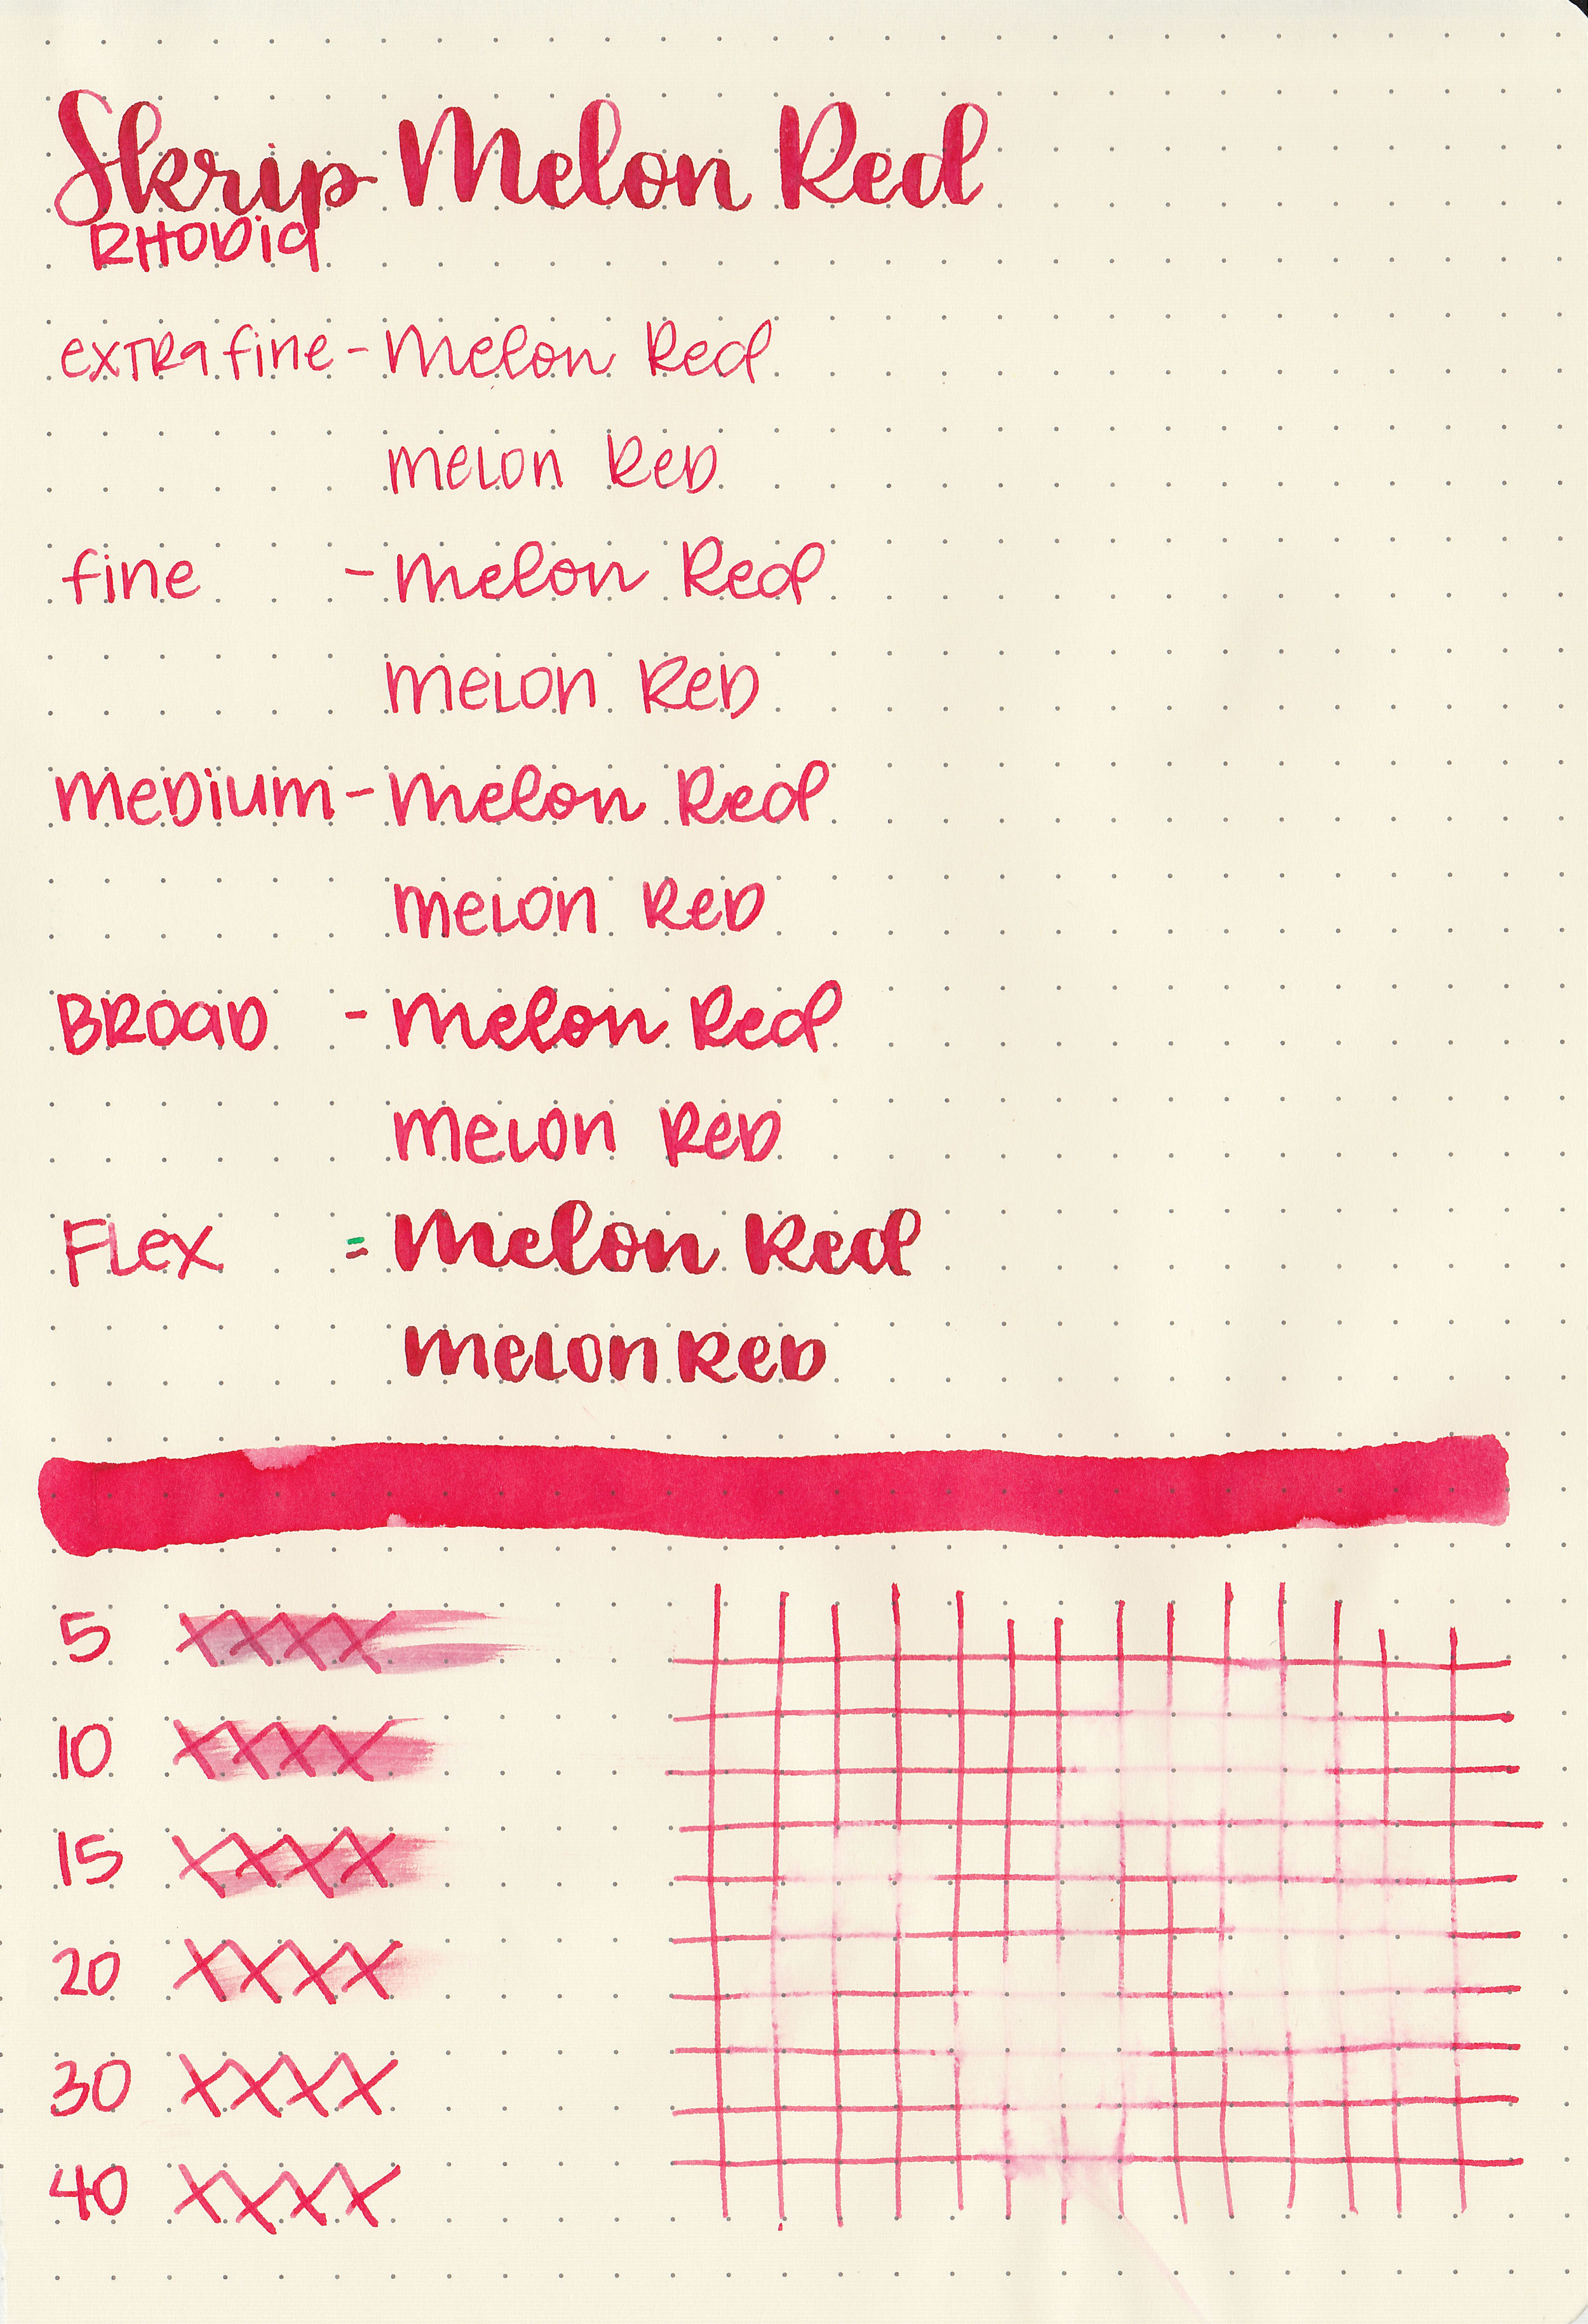 Skrip Melon Red
RHODIA
extra fine - Melon Red
melon Red
fine - Melon Red
melon Red
medium - Melon Red
melon Red
Broad - Melon Red
melon Red
Flex = Melon Red
melon Red
5 XXXX
10 XXXX
15 XXXX
20 XXXX
30 XXXX
40 XXXX